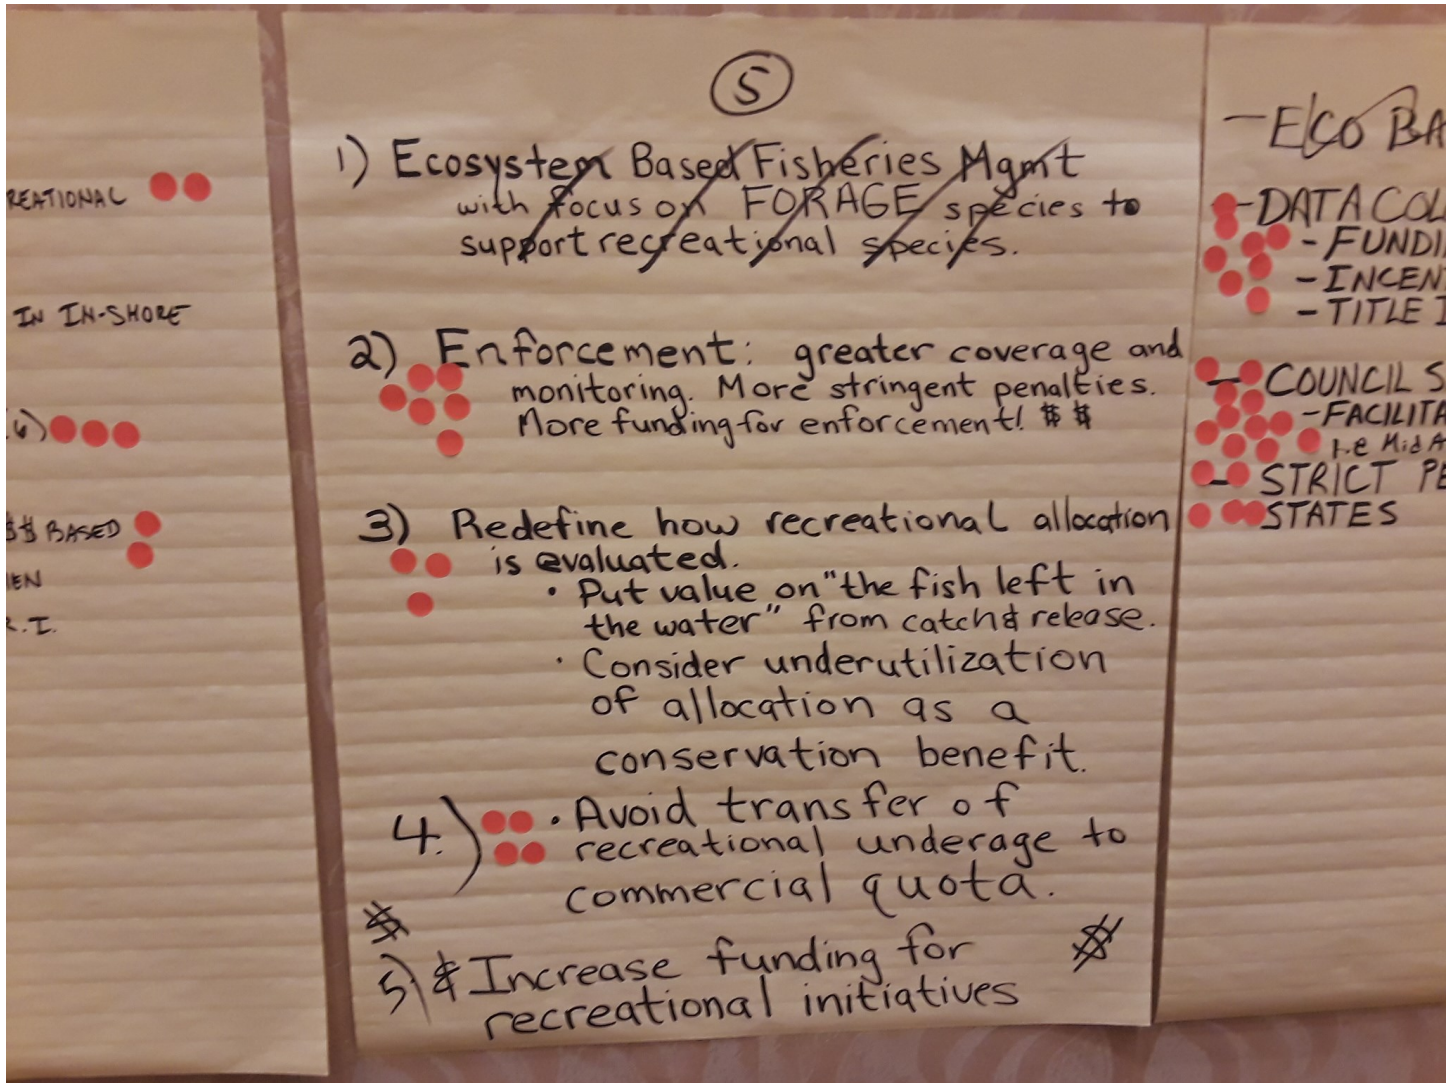 REATIONAL
IN IN-SHORE
$$ BASED
R.I.
5
1) Ecosystem Based Fisheries Mgmt
with focus on FORAGE species to
support recreational species.
2) Enforcement: greater coverage and
monitoring. More stringent penalties.
More funding for enforcement! $ $
3) Redefine how recreational allocation
is evaluated.
• Put value on "the fish left in
the water" from catch & release.
• Consider underutilization
of allocation as a
conservation benefit.
4.) • Avoid transfer of
recreational underage to
commercial quota.
$
5) & Increase funding for $
recreational initiatives
- ECO BA
- DATA COL
- FUNDI
- INCEN
- TITLE I
- COUNCIL S
- FACILITA
i.e Mid A
- STRICT PE
STATES